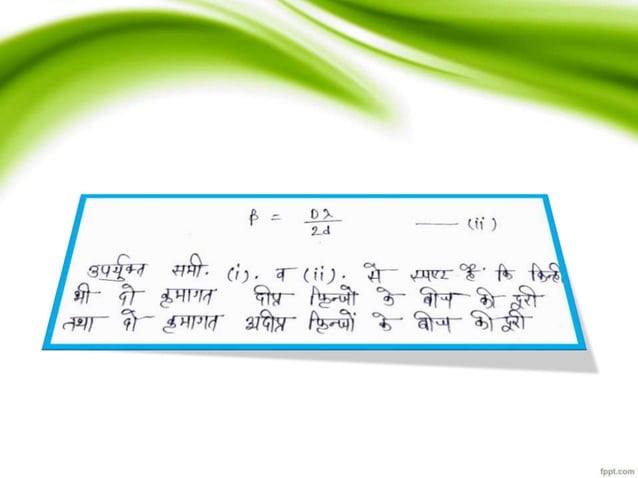 β = Dλ/2d —— (ii)
उपर्युक्त समी. (i). व (ii). से स्पष्ट है. कि किन्ही
भी दो क्रमागत दीप्त फ्रिन्जों के बीच की दूरी
तथा दो क्रमागत अदीप्त फ्रिन्जों के बीच की दूरी
fppt.com